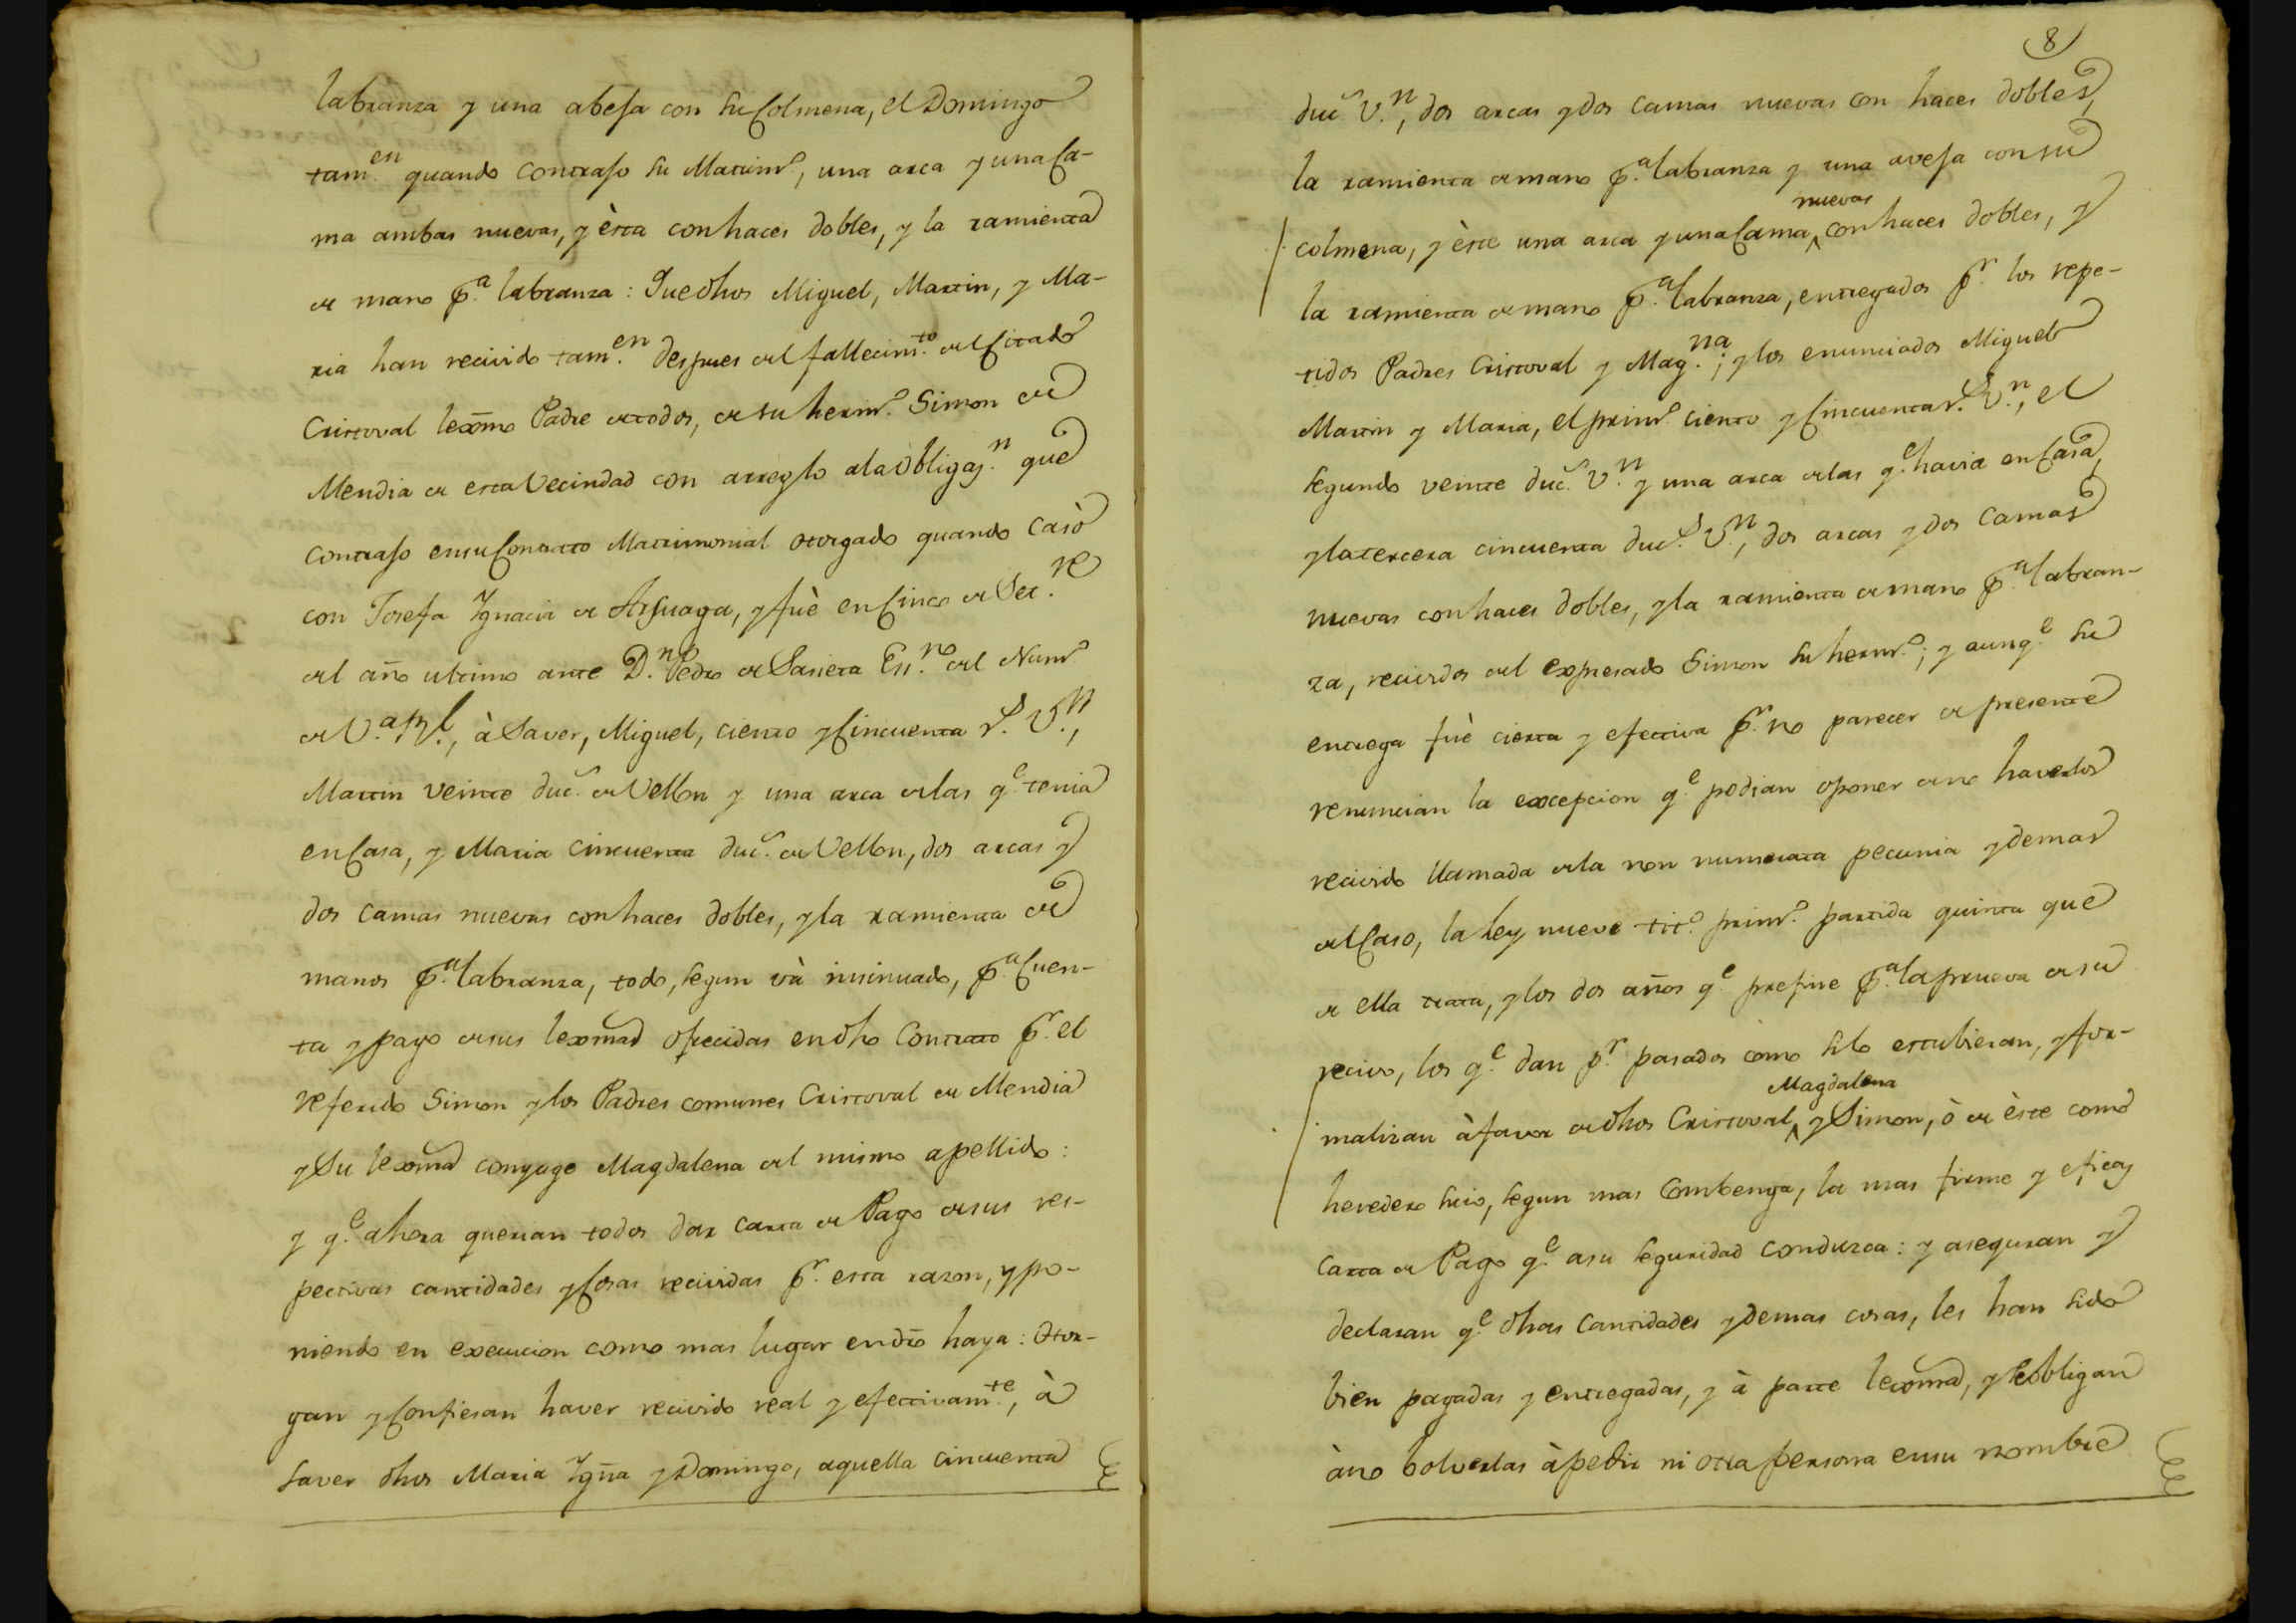 labranza y una abeja con su Colmena, el Domingo
tam.en quando contrajo su Matrim.o, una arca y una Ca-
ma ambas nuevas, y èsta con haces dobles, y la ramienta
de mano p.a labranza: Que dhos Miguel, Martin, y Ma-
ria han recivido tam.en despues del fallecim.to del Citado
Cristoval lexmo Padre de todos, de su herm.o Simon de
Mendia de esta Vecindad con arreglo ala Obligaz.n que
contrajo en su Contrato Matrimonial otorgado quando casò
con Josefa Ygnacia de Arsuaga, y fuè en Cinco de Sec.re
del año ultimo ante D.n Pedro de Sarieta Ess.no del Num.o
de V.a R.l, à Saver, Miguel, ciento y Cincuenta r.s V.n,
Martin veinte duc.s de Vellon y una arca de las q.e tenia
en Casa, y Maria cincuenta duc.s de Vellon, dos arcas y
dos camas nuevas con haces dobles, y la ramienta de
manos p.a labranza, todo, segun và insinuado, p.a Cuen-
ta y pago de sus lexmas ofrecidas en dho Contrato p.r el
referido Simon y los Padres comunes Cristoval de Mendia
y Su lexma conyuge Magdalena del mismo apellido:
y q.e ahora querian todos dar carta de Pago de sus res-
pectivas cantidades y Cosas recividas p.r esta razon, y po-
niendo en execucion como mas lugar en dro haya: Otor-
gan y Confiesan haver recivido real y efectivam.te, à
saver dhos Maria Ygña y Domingo, aquella cincuenta
8
duc.s V.n, dos arcas y dos camas nuevas con haces dobles,
la ramienta de mano p.a labranza y una aveja con su
colmena, y èste una arca y una Cama nuevas con haces dobles, y
la ramienta de mano p.a labranza, entregados p.r los repe-
tidos Padres Cristoval y Mag.na; y los enunciados Miguel
Martin y Maria, el prim.o ciento y Cincuenta r.s V.n, el
segundo veinte duc.s V.n y una arca de las q.e havia en Casa,
y la tercera cincuenta duc.s V.n, dos arcas y dos camas
nuevas con haces dobles, y la ramienta de mano p.a labran-
za, recividos del expresado Simon su herm.o; y aunq.e su
entrega fuè cierta y efectiva p.r no parecer de presente
renuncian la excepcion q.e podian oponer de no haverlos
recivido llamada de la non numerata pecunia y demas
del Caso, la ley nueve tit.o prim.o partida quinta que
de ella trata, y los dos años q.e prefine p.a la prueva de su
recivo, los q.e dan p.r pasados como si lo estubieran, y for-
malizan à favor de dhos Cristoval, Magdalena y Simon, ò de èste como
heredero suio, segun mas Combenga, la mas firme y eficaz
carta de Pago q.e a su seguridad conduzca: y aseguran y
declaran q.e dhas Cantidades y demas cosas, les han sido
bien pagadas y entregadas, y à parte lexma, y se obligan
à no bolverlas à pedir ni otra persona en su nombre